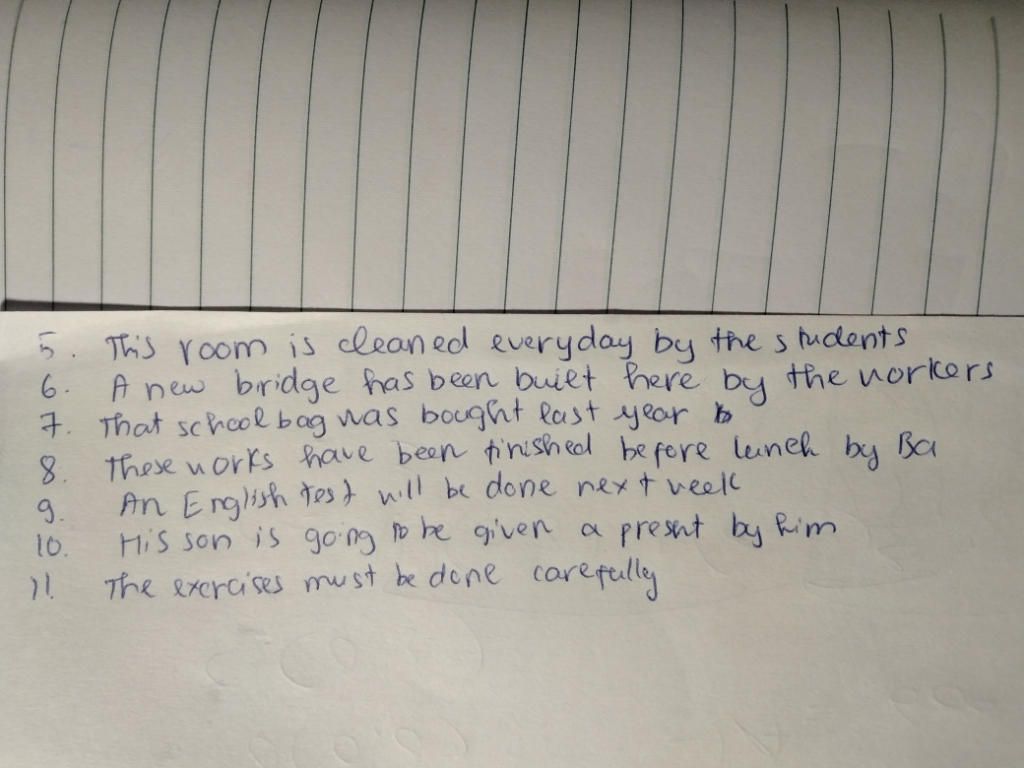 5. This room is cleaned everyday by the students
6. A new bridge has been built here by the workers
7. That school bag was bought last year
8. These works have been finished before lunch by Ba
9. An English test will be done next week
10. His son is going to be given a present by him
11. The exercises must be done carefully